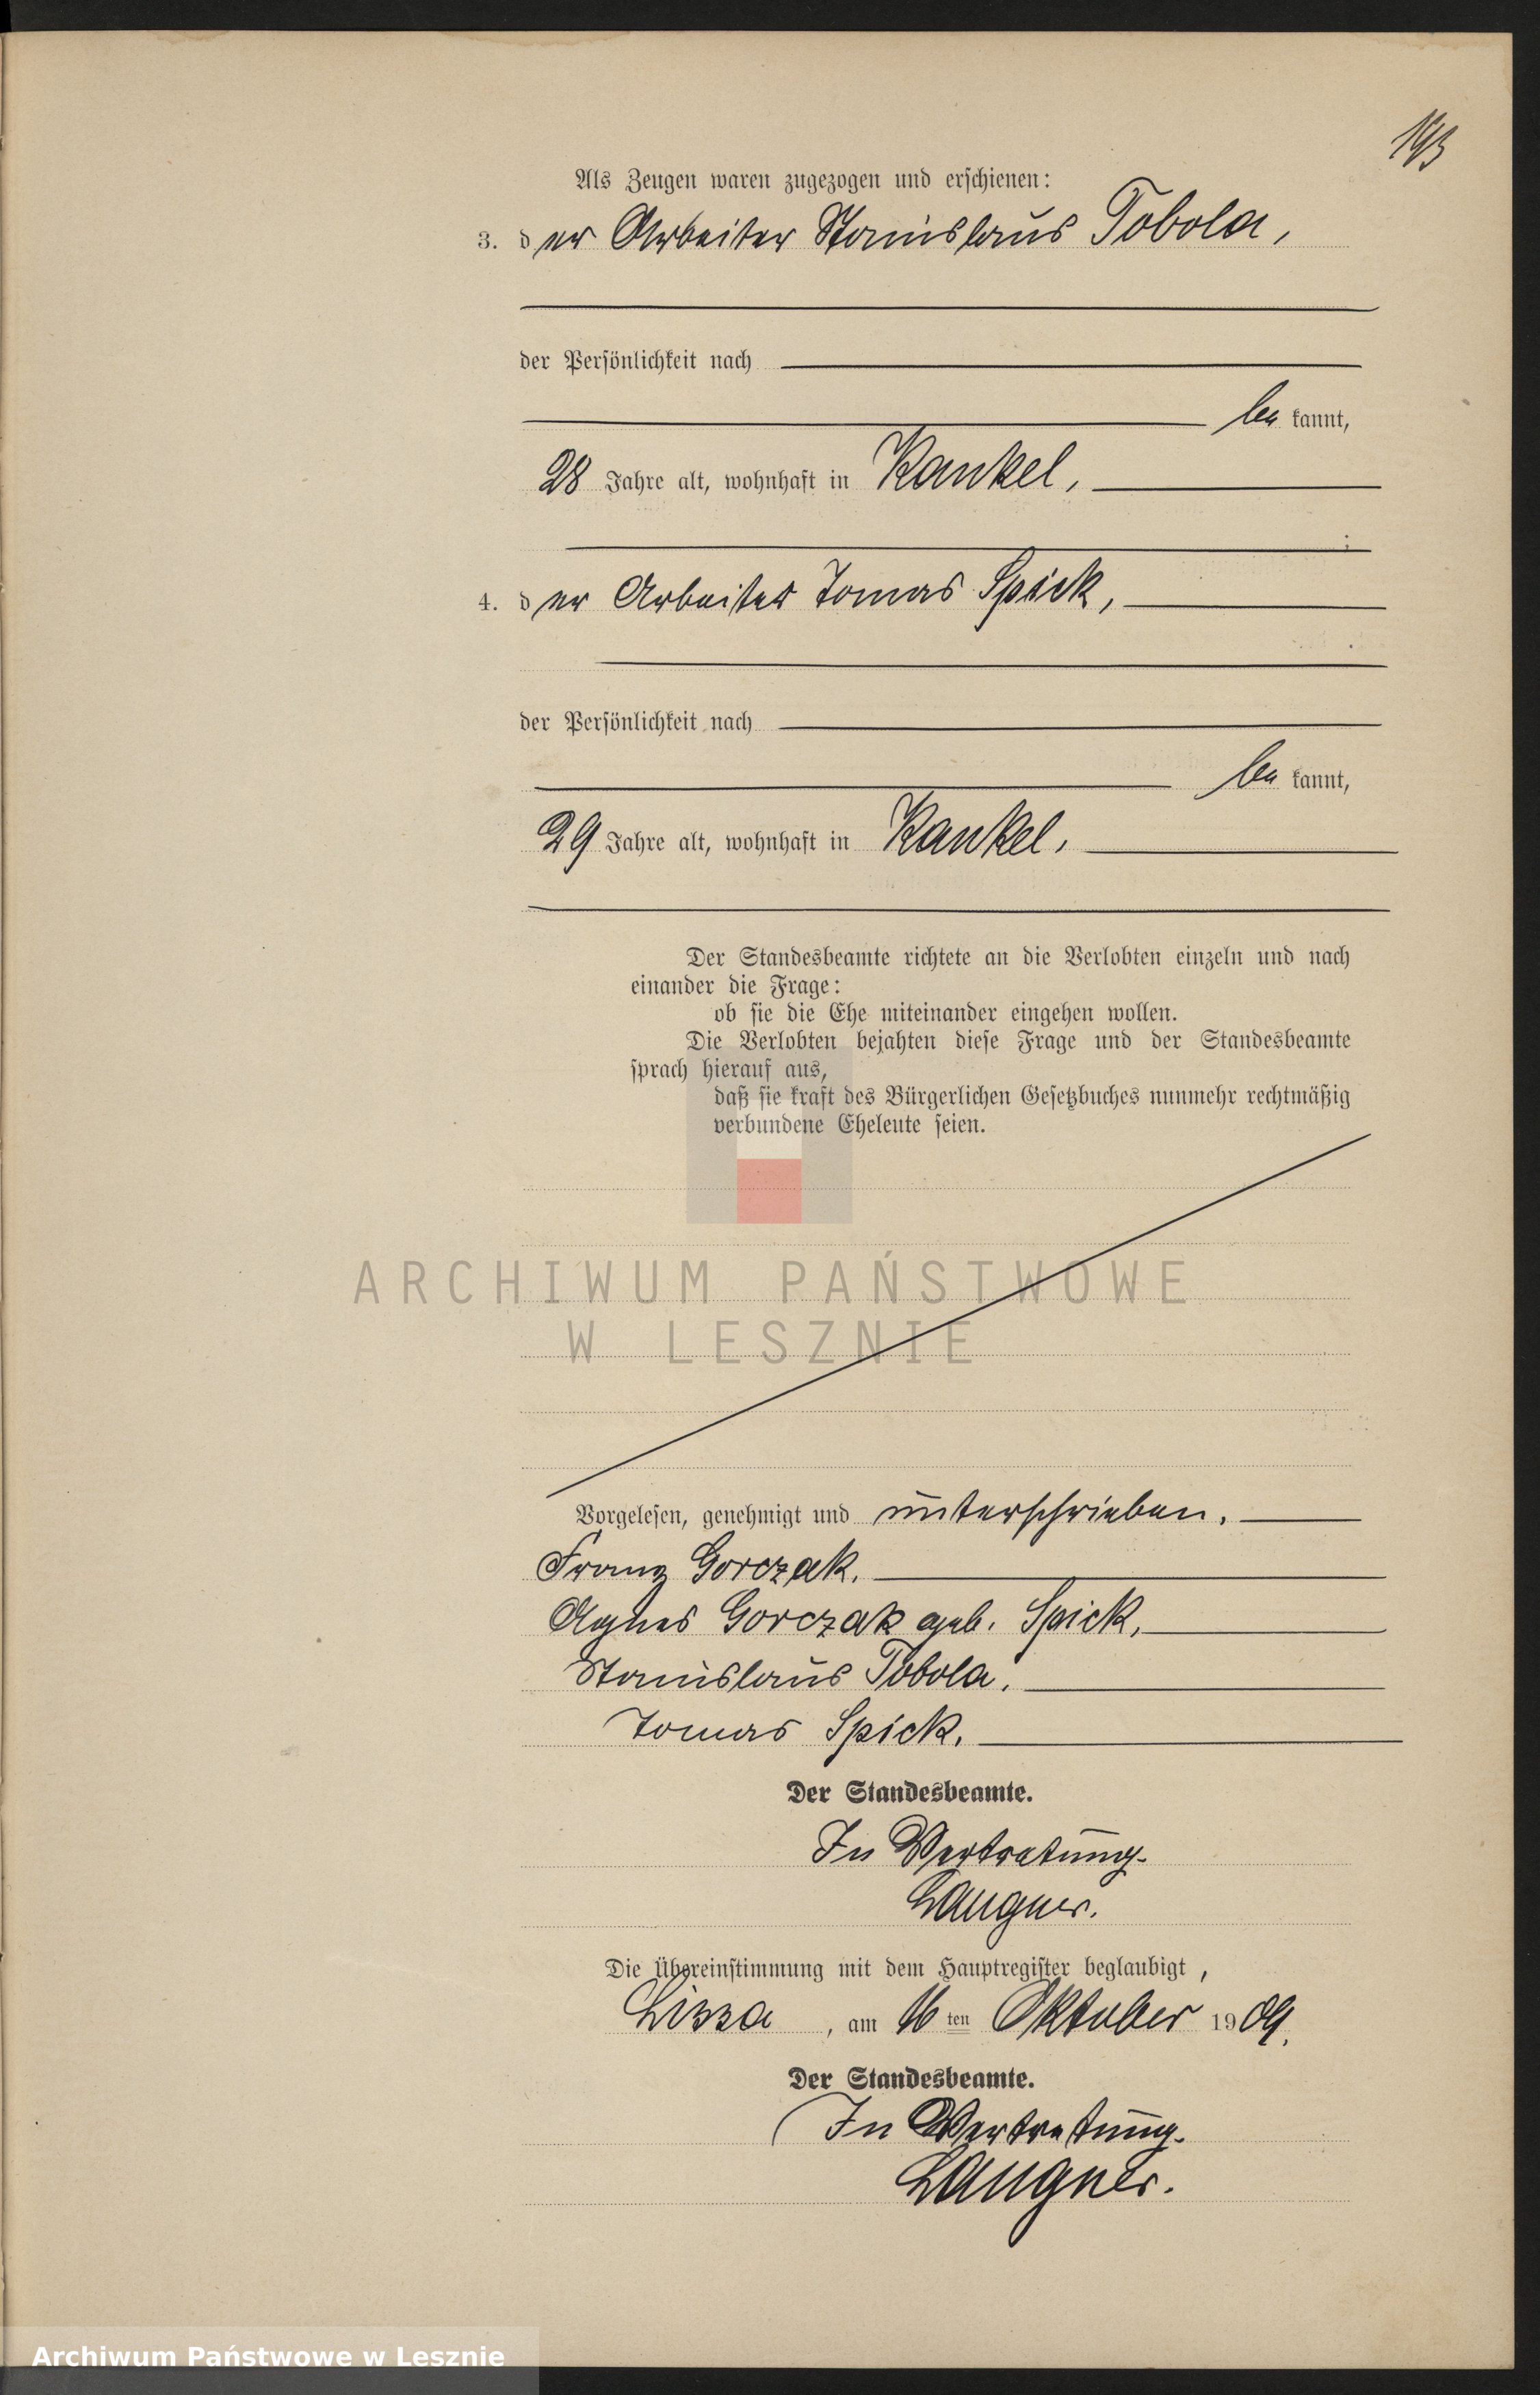 193
Als Zeugen waren zugezogen und erschienen:
3. der Arbeiter Stanislaus Tobola,
der Persönlichkeit nach
bekannt,
28 Jahre alt, wohnhaft in Kankel,
4. der Arbeiter Tomas Spick,
der Persönlichkeit nach
bekannt,
29 Jahre alt, wohnhaft in Kankel,
Der Standesbeamte richtete an die Verlobten einzeln und nach
einander die Frage:
ob sie die Ehe miteinander eingehen wollen.
Die Verlobten bejahten diese Frage und der Standesbeamte
sprach hierauf aus,
daß sie kraft des Bürgerlichen Gesetzbuches nunmehr rechtmäßig
verbundene Eheleute seien.
ARCHIWUM PAŃSTWOWE
W LESZNIE
Vorgelesen, genehmigt und unterschrieben.
Franz Gorczak.
Agnes Gorczak geb. Spick.
Stanislaus Tobola.
Tomas Spick.
Der Standesbeamte.
In Vertretung.
Langner.
Die Übereinstimmung mit dem Hauptregister beglaubigt,
Lissa, am 16ten Oktober 1909.
Der Standesbeamte.
In Vertretung.
Langner.
Archiwum Państwowe w Lesznie